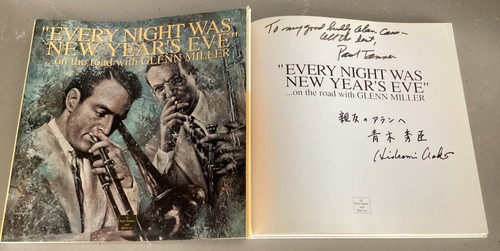 "EVERY NIGHT WAS
NEW YEAR'S EVE"
...on the road with GLENN MILLER
To my good buddy Alan Cass—
All the best,
Paul Tanner
"EVERY NIGHT WAS
NEW YEAR'S EVE"
...on the road with GLENN MILLER
親友のアランへ
青木秀臣
Hideomi Aoki
by